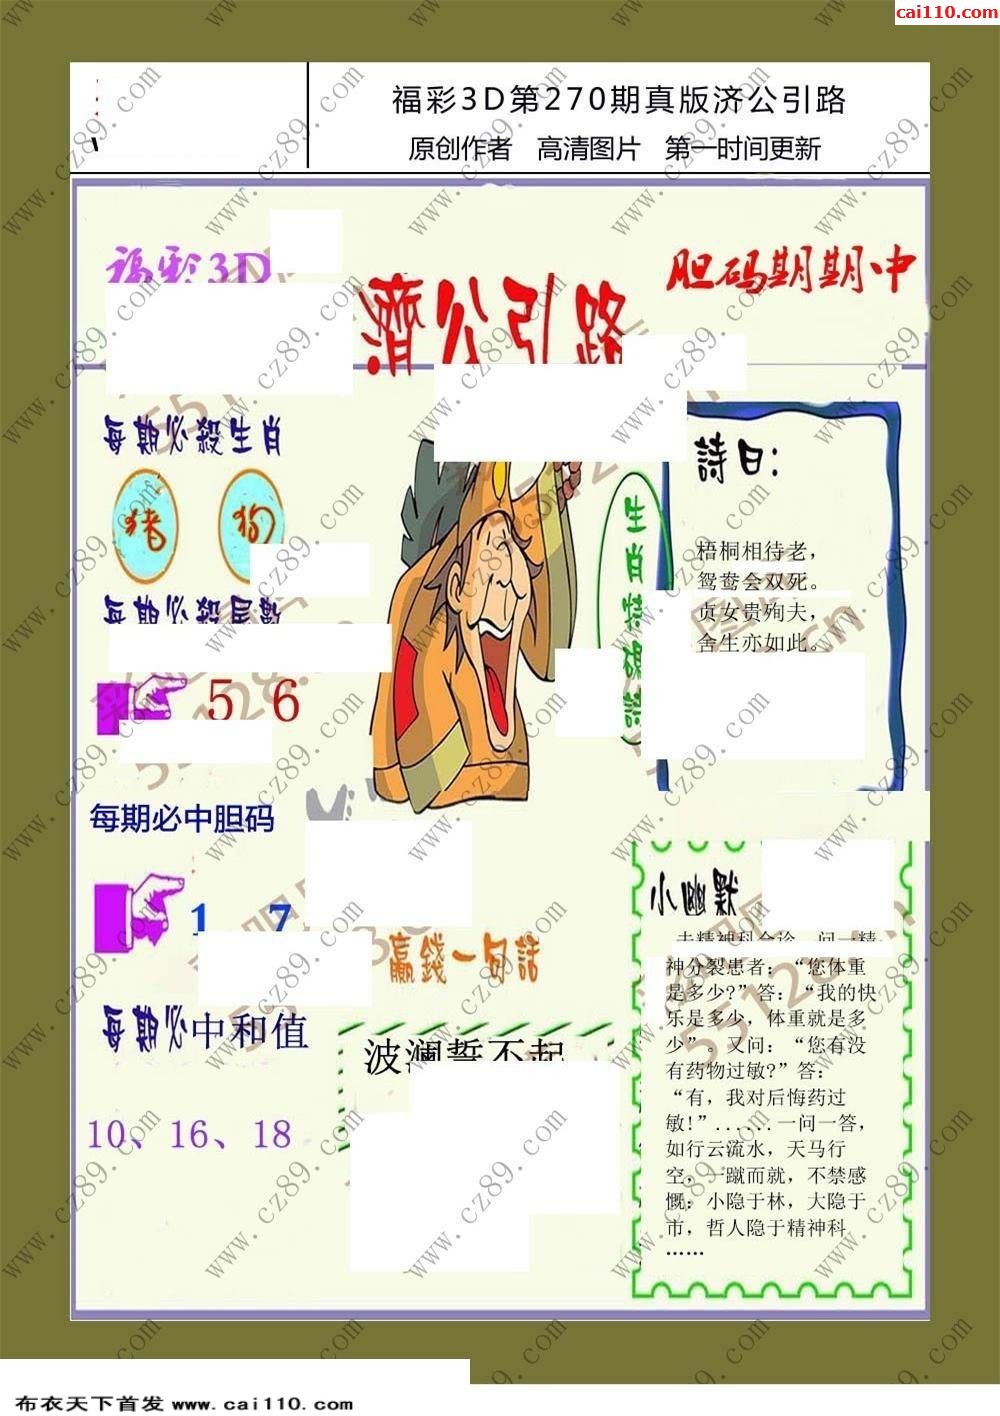 cai110.com
福彩3D第270期真版济公引路
原创作者 高清图片 第一时间更新
福彩3D
濟公引路
胆码期期中
每期必殺生肖
猪 狗
每期必殺尾數
5 6
每期必中胆码
1 7
每期必中和值
10、16、18
生肖特碼詩
詩曰：
梧桐相待老，
鸳鸯会双死。
贞女贵殉夫，
舍生亦如此。
赢錢一句話
波澜誓不起
小幽默
去精神科会诊，问一精
神分裂患者：“您体重
是多少?”答：“我的快
乐是多少，体重就是多
少”。又问：“您有没
有药物过敏?”答：
“有，我对后悔药过
敏!”......一问一答，
如行云流水，天马行
空，一蹴而就，不禁感
慨：小隐于林，大隐于
市，哲人隐于精神科
……
www.cz89.com
55128.cn
布衣天下首发 www.cai110.com